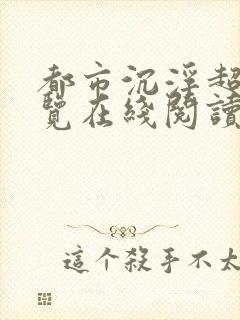 都市沉淫超
覽在綫閱讀
這个殺手不太